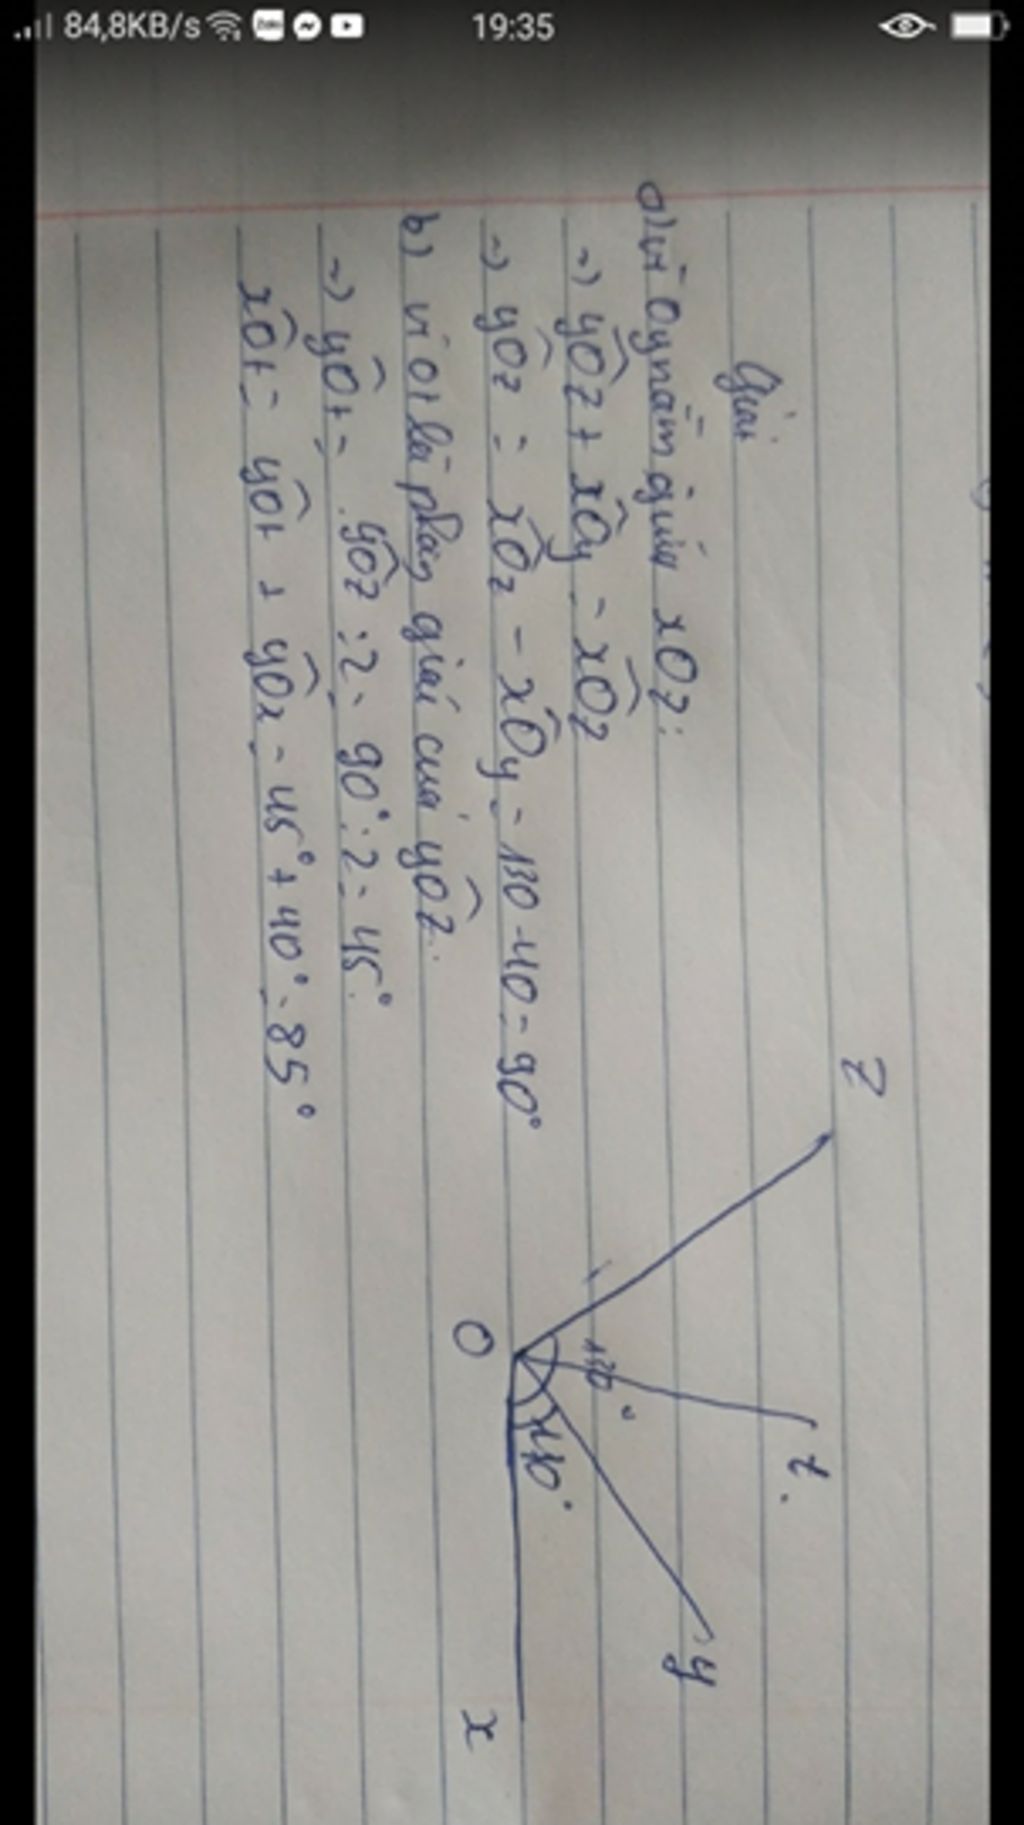 84,8KB/s 19:35
Giải
a) vì Oy nằm giữa xOz:
=> yÔz + xÔy = xÔz
=> yÔz = xÔz - xÔy = 130 - 40 = 90°
b) vì Ot là phân giái của yÔz:
=> yÔt = yÔz : 2 = 90° : 2 = 45°
xÔt = yÔt + yÔx = 45° + 40° = 85°
z
t
130°
40°
y
O
x